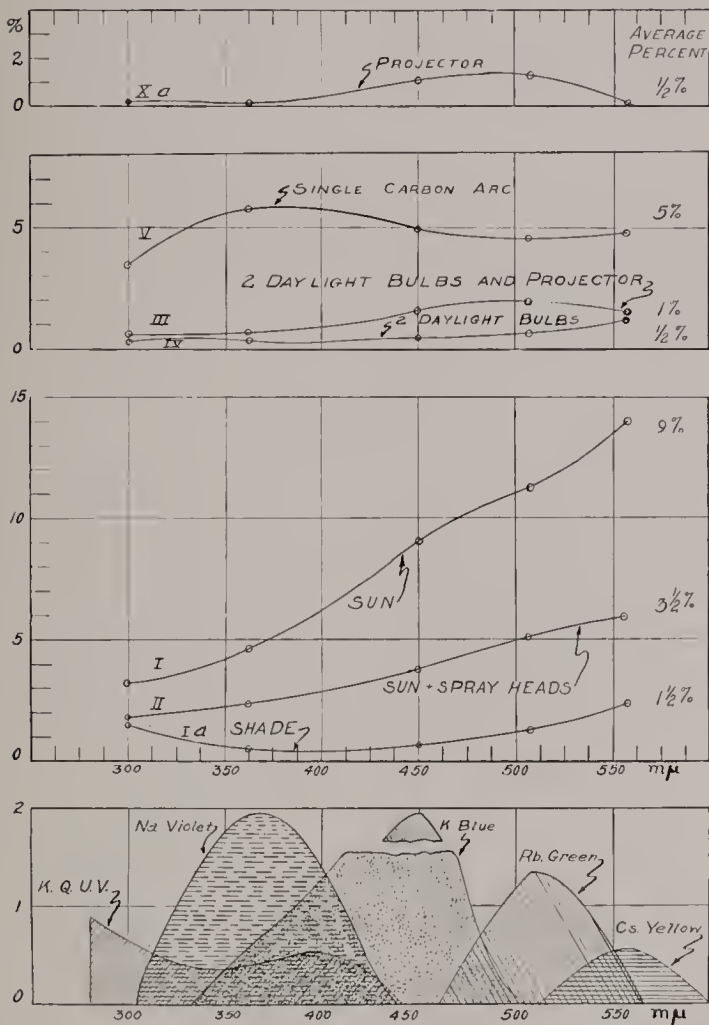 %
AVERAGE
PERCENT
2
PROJECTOR
X a
½%
0
SINGLE CARBON ARC
V
5
5%
2 DAYLIGHT BULBS AND PROJECTOR
III
1%
2 DAYLIGHT BULBS
IV
½%
0
15
9%
10
SUN
3½%
5
I
II
SUN + SPRAY HEADS
I a
SHADE
1½%
0
300 350 400 450 500 550 mμ
2
Na Violet
K Blue
K. Q. U.V.
Rb. Green
1
Cs. Yellow
0
300 350 400 450 500 550 mμ